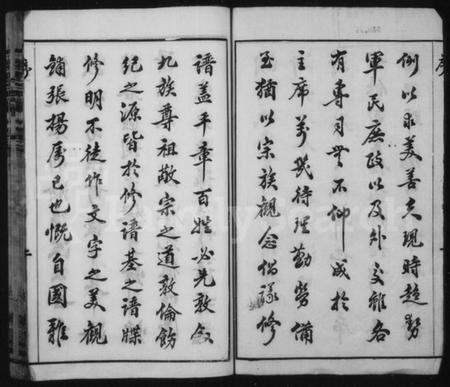 序
例以求美善夫現時趨勢
軍民庶政以及外交雖各
有專司無不仰成於
主席萬幾待理勤勞備
至猶以宗族觀念倡議修
譜蓋平章百姓必先敦敘
九族尊祖敬宗之道敦倫飭
紀之源皆於修譜基之譜牒
修明不徒作文字之美觀
鋪張揚厲已也慨自國難